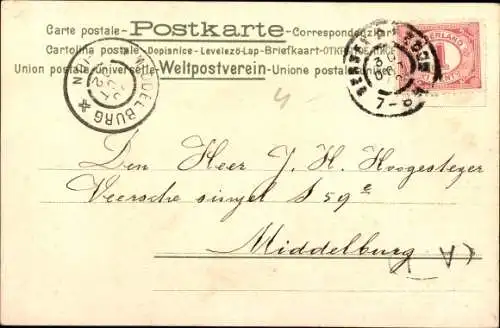 Carte postale – Postkarte – Correspondenzkart
Cartolina postale – Dopisnice – Levelező-Lap – Briefkaart – ОТКР
Union postale universelle – Weltpostverein – Unione postale
MIDDELBURG
7-8
ERLAND
1
CENT
4
Den Heer J. H. Hoogesteger
Veersche singel S 59 e
Middelburg